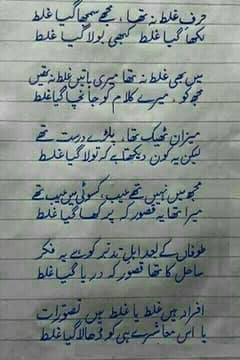 حرفِ غلط نہ تھا ، مجھے سمجھا گیا غلط
لکھا گیا غلط کبھی بولا گیا غلط
میں بھی غلط نہ تھا میری باتیں غلط نہ تھیں
مجھ کو ، میرے کلام کو جانچا گیا غلط
میزان ٹھیک تھا، پلڑے درست تھے
لیکن یہ کون دیکھتا ہے کہ تولا گیا غلط
مجھ میں نہیں تھے عیب، کسوٹی میں عیب تھے
میرا تھا یہ قصور کہ پرکھا گیا غلط
طوفان کے بعد اہلِ تدبر کو ہے یہ فکر
ساحل کا تھا قصور کہ دریا گیا غلط
افراد ہیں غلط یا غلط ہیں تصورات
یا اس معاشرے ہی کو ڈھالا گیا غلط